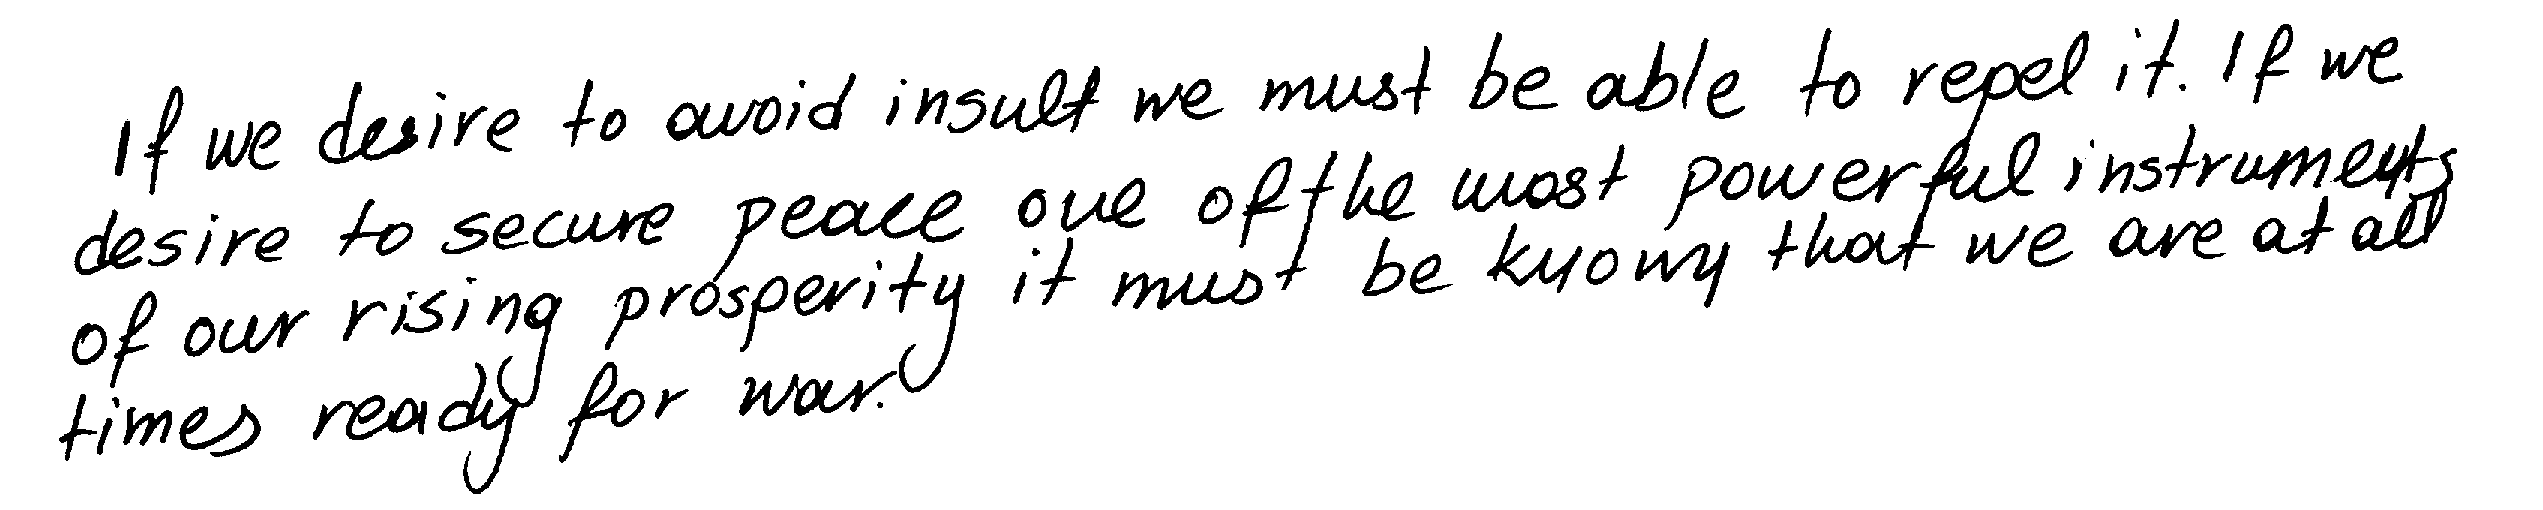 If we desire to avoid insult we must be able to repel it. If we
desire to secure peace one of the most powerful instruments
of our rising prosperity it must be known that we are at all
times ready for war.